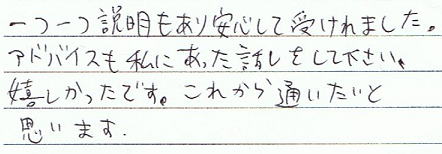 一つ一つ説明もあり安心して受けれました。
アドバイスも私にあった話しをして下さい、
嬉しかったです。これから通いたいと
思います.